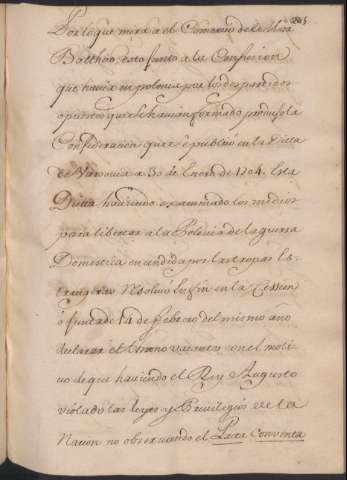 205
Por lo que mira a el Comercio de el Mar
Balthco, esto junto a la Confusion
que havia en polonia por los dos partidos
opuestos que se havian formado produjo la
Confederacion que se publicó en la Dieta
de Varsovia a 30 de Enero de 1704. Esta
Dieta haviendo examinado los medios
para libertar a la Polonia de la guerra
Domestica encendida por las tropas Es-
trangeras Resolvió en fin en la Session
ó Junta de 14 de Febrero del mismo año
declarar el trono vacante con el moti-
vo de que haviendo el Rey Augusto
violado las leyes y Privilegios de la
Nacion no observando el Pacta Conventa